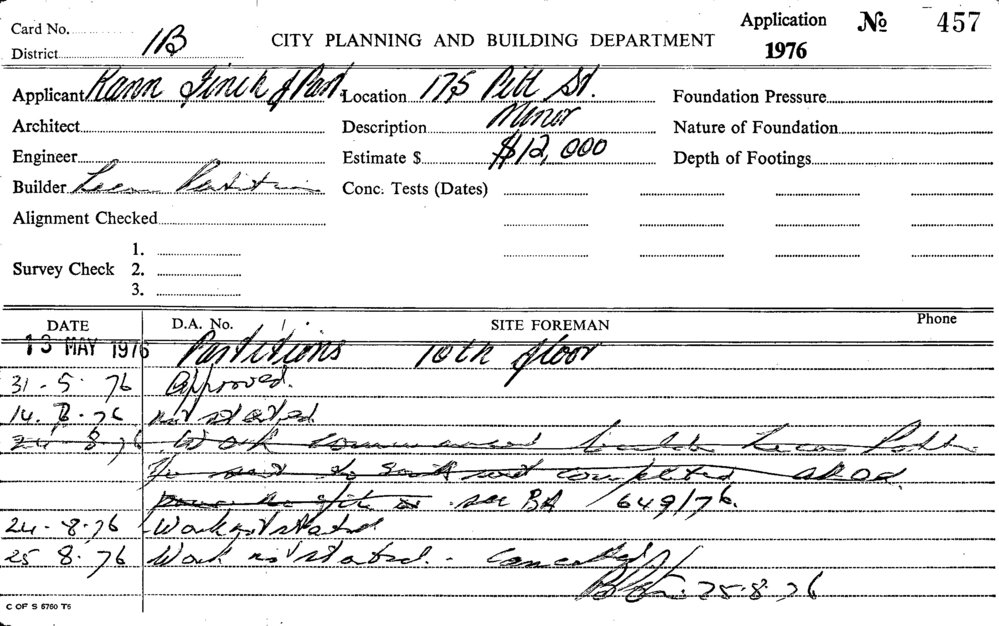 Card No.
District 1B
CITY PLANNING AND BUILDING DEPARTMENT
Application № 457
1976
Applicant Rann Finch & Part. Location 175 Pitt St. Foundation Pressure
Architect Description Minor Nature of Foundation
Engineer Estimate $ $12,000 Depth of Footings
Builder Conc. Tests (Dates)
Alignment Checked
Survey Check 1.
2.
3.
DATE D.A. No. SITE FOREMAN Phone
13 MAY 1976 Partitions 10th floor
31-5-76 Approved.
not started
24-8-76 Work commenced
completed
see BA 649/76.
24-8-76 Work not started
25 8.76 Work not started. Cancelled
25-8-76
C OF S 6760 T6